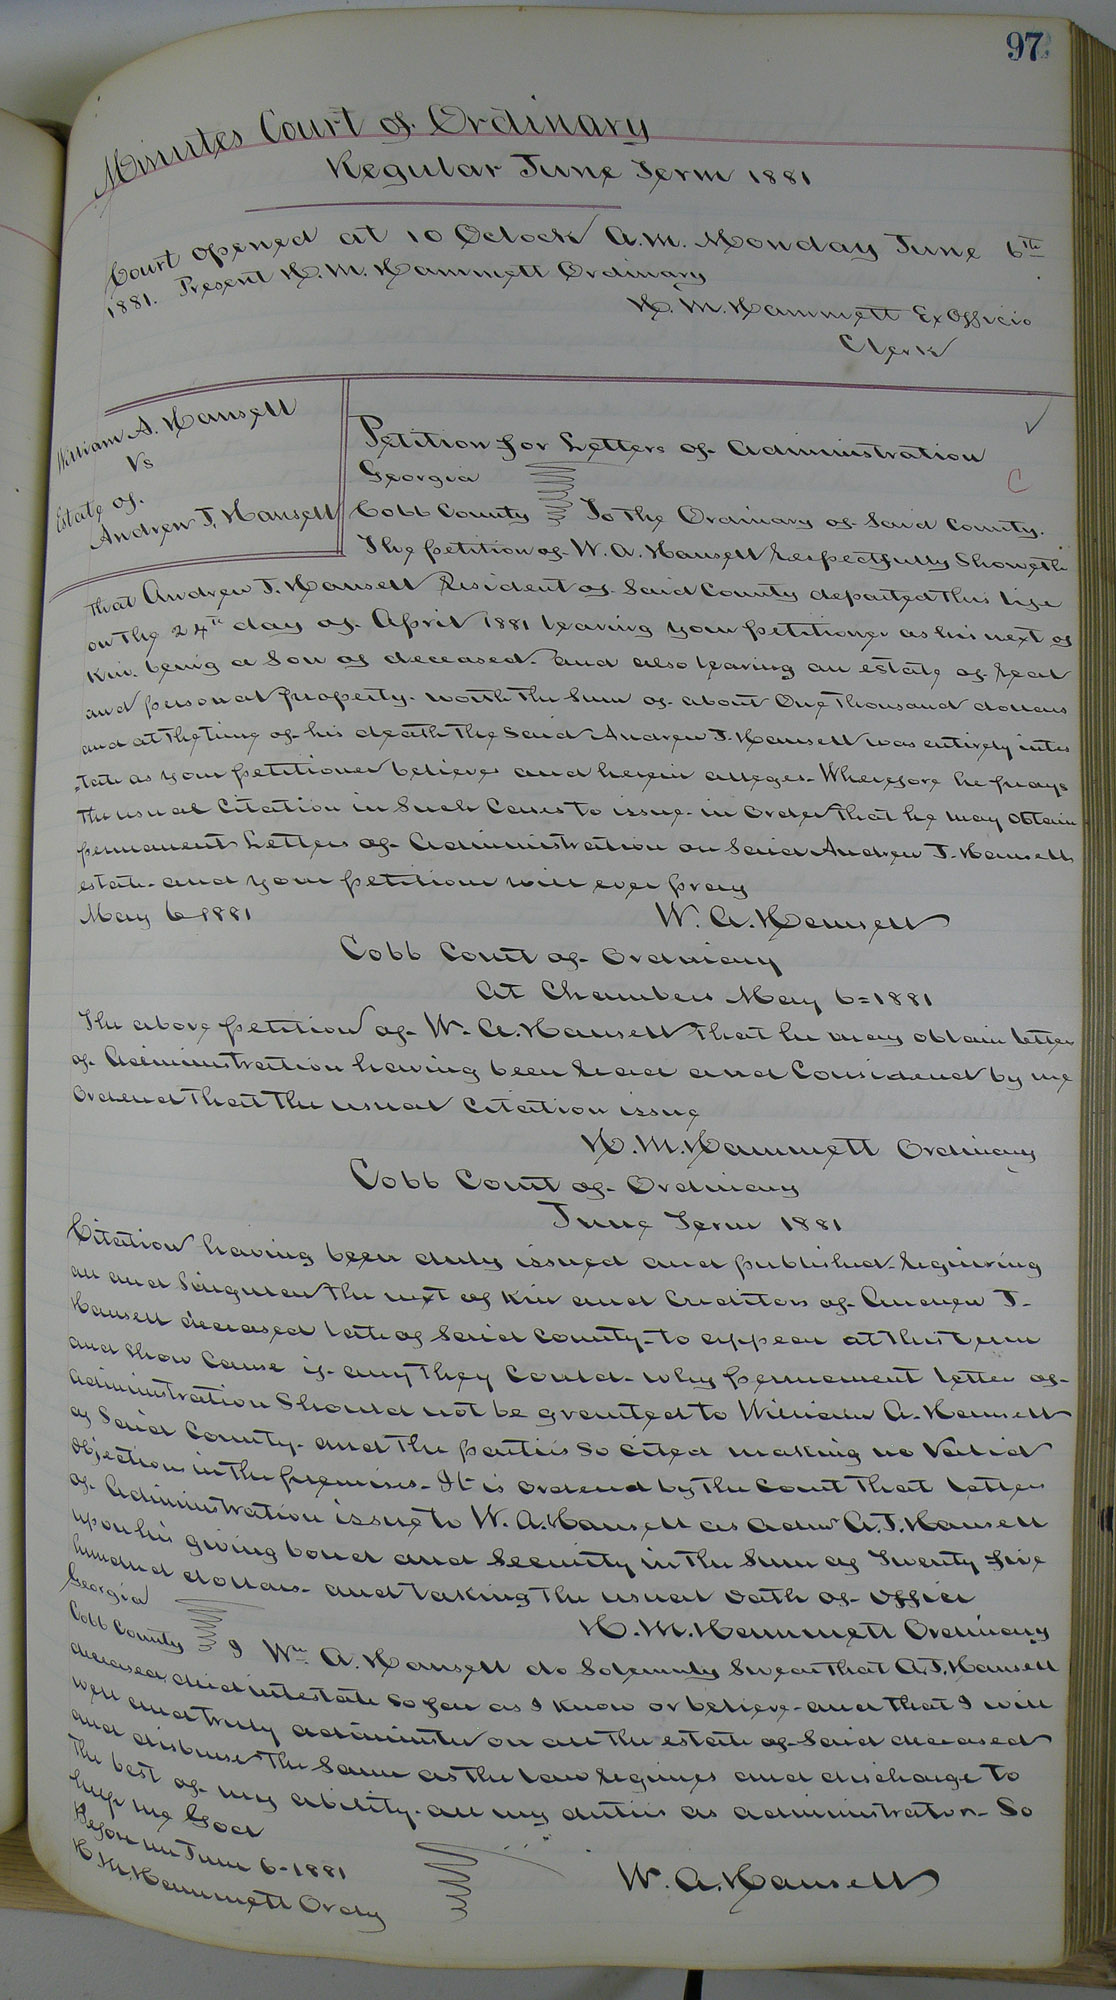 97
Minutes Court of Ordinary
Regular June Term 1881
Court opened at 10 Oclock A.M. Monday June 6th
1881. Present H. M. Hammett Ordinary
H. M. Hammett Ex Officio
Clerk
William A. Hansell
Vs
Estate of
Andrew J. Hansell
C
Petition for Letters of Administration
Georgia
Cobb County To the Ordinary of Said County.
The petition of W. A. Hansell Respectfully Showeth
that Andrew J. Hansell Resident of Said County departed this life
on the 24th day of April 1881 leaving your petitioner as his next of
Kin. being a Son of deceased. and also leaving an estate of real
and personal property. worth the Sum of about One thousand dollars
and at the time of his death the Said Andrew J. Hansell was entirely intes
-tate as your petitioner believes and herein alleges. Wherefore he prays
the usual Citation in Such Cases to issue. in order that he may obtain
permanent Letters of Administration on Said Andrew J. Hansells
estate. and your petitioner will ever pray
May 6-1881 W. A. Hansell
Cobb Court of Ordinary
At Chambers May 6=1881
The above petition of W. A. Hansell that he may obtain letters
of Administration having been read and Considered by me
Ordered that the usual Citation issue
H. M. Hammett Ordinary
Cobb Court of Ordinary
June Term 1881
Citation having been duly issued and published. requiring
all and Singular the next of Kin and Creditors of Andrew J.
Hansell deceased late of Said County. to appear at this term
and Show Cause if any they Could. why permanent letters of
administration Should not be granted to William A. Hansell
of Said County. and the parties So cited making no Valid
objections in the premises. It is ordered by the Court that letters
of Administration issue to W. A. Hansell as admr A. J. Hansell
upon his giving bond and Security in the Sum of Twenty five
hundred dollars. and taking the usual oath of office
H. M. Hammett Ordinary
Georgia
Cobb County I Wm A. Hansell do Solemnly Swear that A. J. Hansell
deceased died intestate So far as I know or believe. and that I will
well and truly administer on all the estate of Said deceased
and disburse the Same as the law requires and discharge to
the best of my ability. all my duties as administrator. So
help me God
Before me June 6-1881
H. M. Hammett Ordy
W. A. Hansell